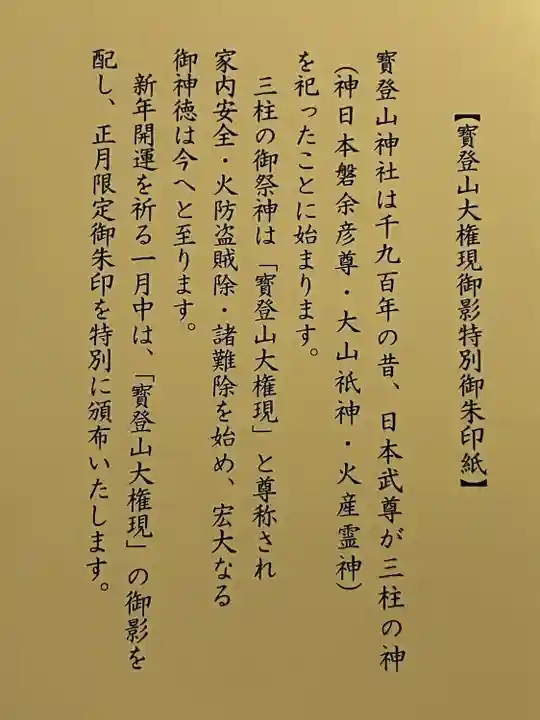 【寳登山大権現御影特別御朱印紙】
寳登山神社は千九百年の昔、日本武尊が三柱の神
(神日本磐余彦尊・大山祇神・火産霊神)
を祀ったことに始まります。
三柱の御祭神は「寳登山大権現」と尊称され
家内安全・火防盗賊除・諸難除を始め、宏大なる
御神徳は今へと至ります。
新年開運を祈る一月中は、「寳登山大権現」の御影を
配し、正月限定御朱印を特別に頒布いたします。